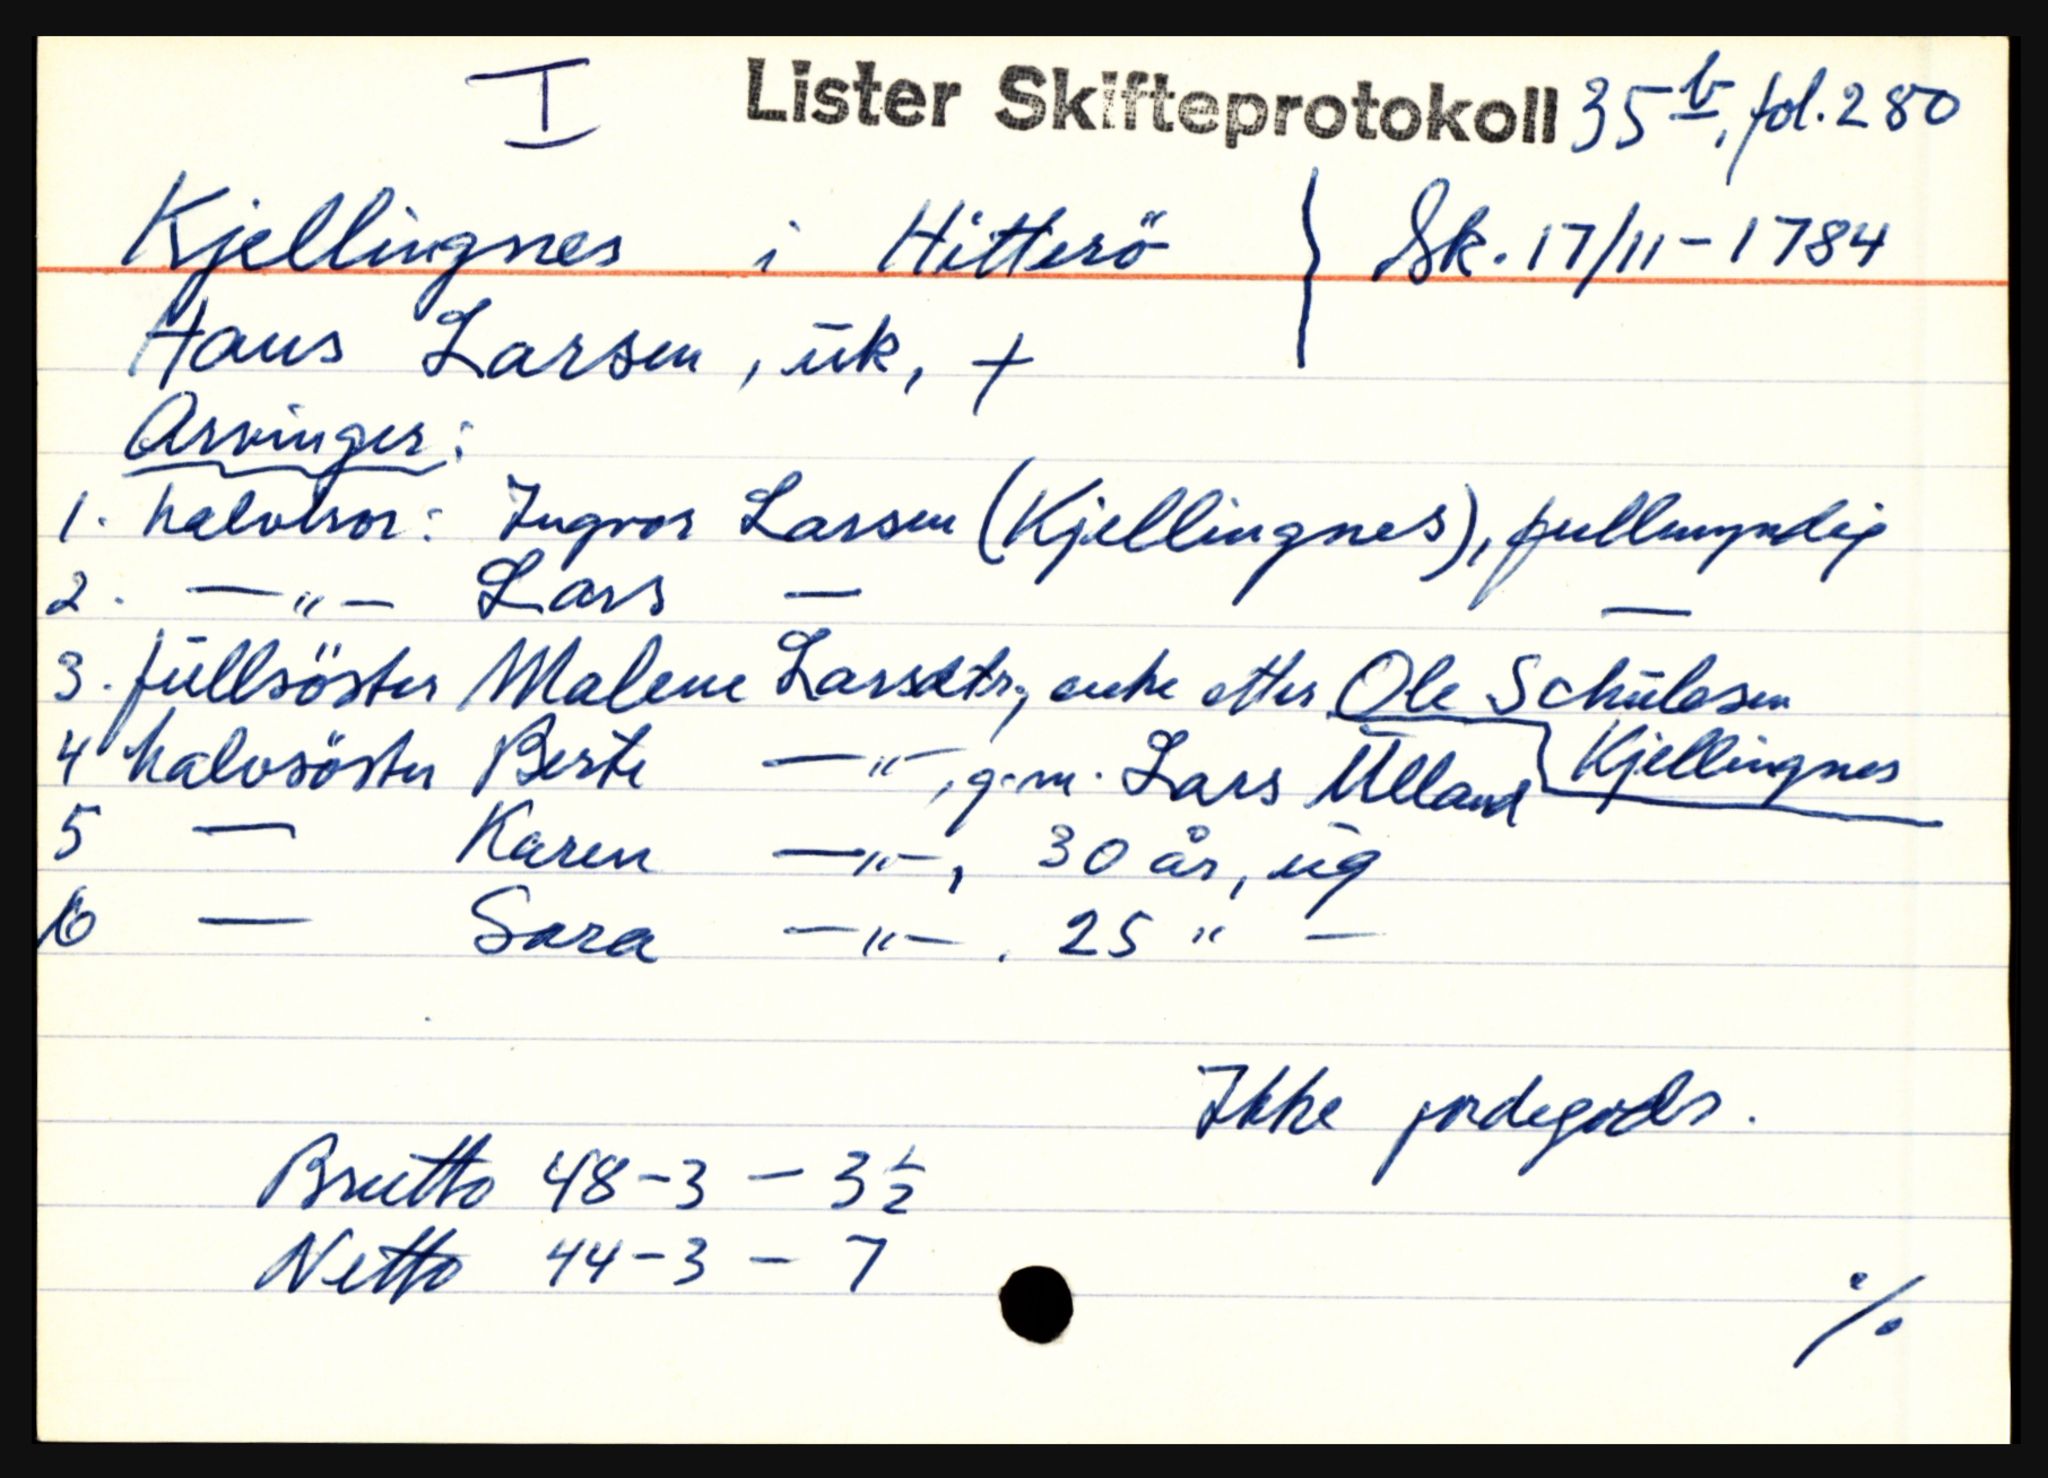 I Lister Skifteprotokoll 35 b, fol. 280
Kjellingnes i Hitterö } Sk. 17/11-1784
Hans Larsen, ūk, +
Arvinger:
1. halvbror: Ingvor Larsen (Kjellingnes), fullmyndig
2. —"— Lars — —
3. fūllsöster Malene Larsdtr, enke etter Ole Schūlesen
4 halvsöster Berte —"—, g.m. Lars Ūlland Kjellingnes
5 — Karen —"—, 30 år, ūg
6 — Sara —"—. 25 " —
Ikke jordegods.
Brutto 48-3-3½
Netto 44-3-7
%